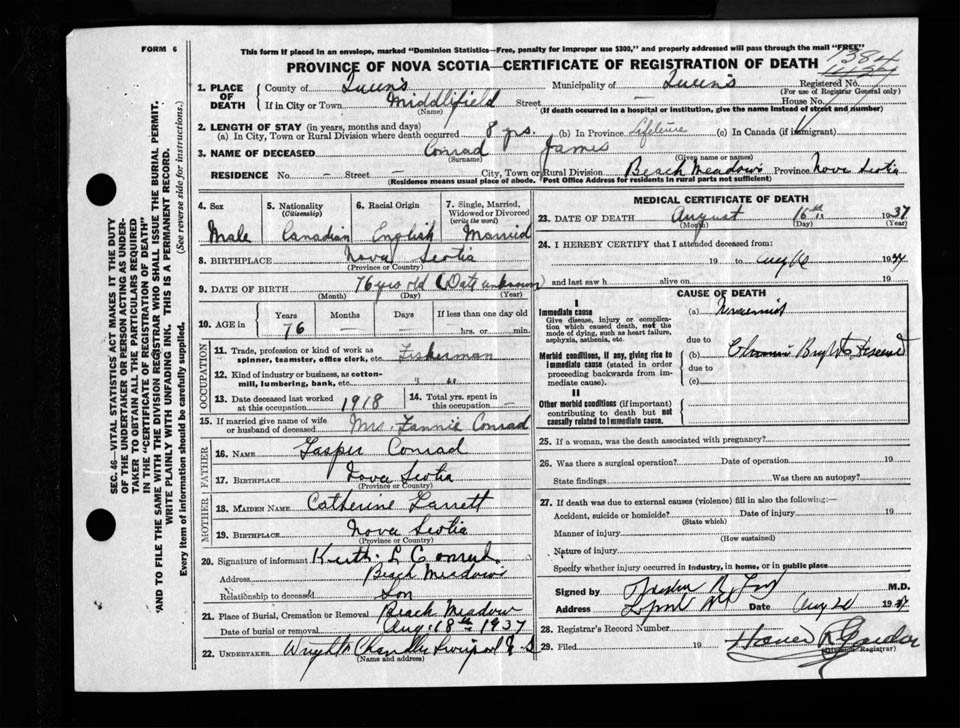 FORM 6
This form if placed in an envelope, marked "Dominion Statistics—Free, penalty for improper use $300," and properly addressed will pass through the mail "FREE"
PROVINCE OF NOVA SCOTIA—CERTIFICATE OF REGISTRATION OF DEATH
1384
Registered No.
(For use of Registrar General only)
1. PLACE OF DEATH
County of Queen's Municipality of Queen's
If in City or Town Middlefield Street — House No.
(Name) (If death occurred in a hospital or institution, give the name instead of street and number)
2. LENGTH OF STAY (in years, months and days)
(a) In City, Town or Rural Division where death occurred 8 yrs. (b) In Province Lifetime (c) In Canada (if immigrant)
3. NAME OF DECEASED Conrad James
(Surname) (Given name or names)
RESIDENCE No. — Street — City, Town or Rural Division Beach Meadows Province Nova Scotia
(Residence means usual place of abode. Post Office Address for residents in rural parts not sufficient)
4. Sex Male
5. Nationality (Citizenship) Canadian
6. Racial Origin English
7. Single, Married, Widowed or Divorced (write the word) Married
8. BIRTHPLACE Nova Scotia
(Province or Country)
9. DATE OF BIRTH 76 yrs old (Date unknown)
(Month) (Day) (Year)
10. AGE in Years Months Days If less than one day old
76 — — hrs. or min.
OCCUPATION
11. Trade, profession or kind of work as spinner, teamster, office clerk, etc. Fisherman
12. Kind of industry or business, as cotton-mill, lumbering, bank, etc. " "
13. Date deceased last worked at this occupation 1918
14. Total yrs. spent in this occupation —
15. If married give name of wife or husband of deceased Mrs. Fannie Conrad
FATHER
16. NAME Gasper Conrad
17. BIRTHPLACE Nova Scotia
(Province or Country)
MOTHER
18. MAIDEN NAME Catherine
19. BIRTHPLACE Nova Scotia
(Province or Country)
20. Signature of informant Keith L Conrad
Address Beach Meadows
Relationship to deceased Son
21. Place of Burial, Cremation or Removal Beach Meadow
Date of burial or removal Aug. 18th 1937
22. UNDERTAKER Wright Chandler Liverpool N S
(Name and address)
MEDICAL CERTIFICATE OF DEATH
23. DATE OF DEATH August 16th 1937
(Month) (Day) (Year)
24. I HEREBY CERTIFY that I attended deceased from:
19 to Aug 19
and last saw h alive on 19
CAUSE OF DEATH
I
Immediate cause
Give disease, injury or complication which caused death, not the mode of dying, such as heart failure, asphyxia, asthenia, etc.
(a) Uraemia
due to
Morbid conditions, if any, giving rise to immediate cause (stated in order proceeding backwards from immediate cause).
(b) Chronic Brights Disease
due to
(c)
II
Other morbid conditions (if important) contributing to death but not causally related to immediate cause.
25. If a woman, was the death associated with pregnancy?
26. Was there a surgical operation? Date of operation 19
State findings Was there an autopsy?
27. If death was due to external causes (violence) fill in also the following:—
Accident, suicide or homicide? Date of injury 19
(State which)
Manner of injury
(How sustained)
Nature of injury
Specify whether injury occurred in Industry, in home, or in public place
Signed by M.D.
Address Date Aug 20 1937
28. Registrar's Record Number
29. Filed 19
(Division Registrar)
SEC. 46—VITAL STATISTICS ACT MAKES IT THE DUTY
OF THE UNDERTAKER OR PERSON ACTING AS UNDER-
TAKER TO OBTAIN ALL THE PARTICULARS REQUIRED
IN THE "CERTIFICATE OF REGISTRATION OF DEATH"
'AND TO FILE THE SAME WITH THE DIVISION REGISTRAR WHO SHALL ISSUE THE BURIAL PERMIT.
WRITE PLAINLY WITH UNFADING INK. THIS IS A PERMANENT RECORD.
Every item of information should be carefully supplied. (See reverse side for instructions.)